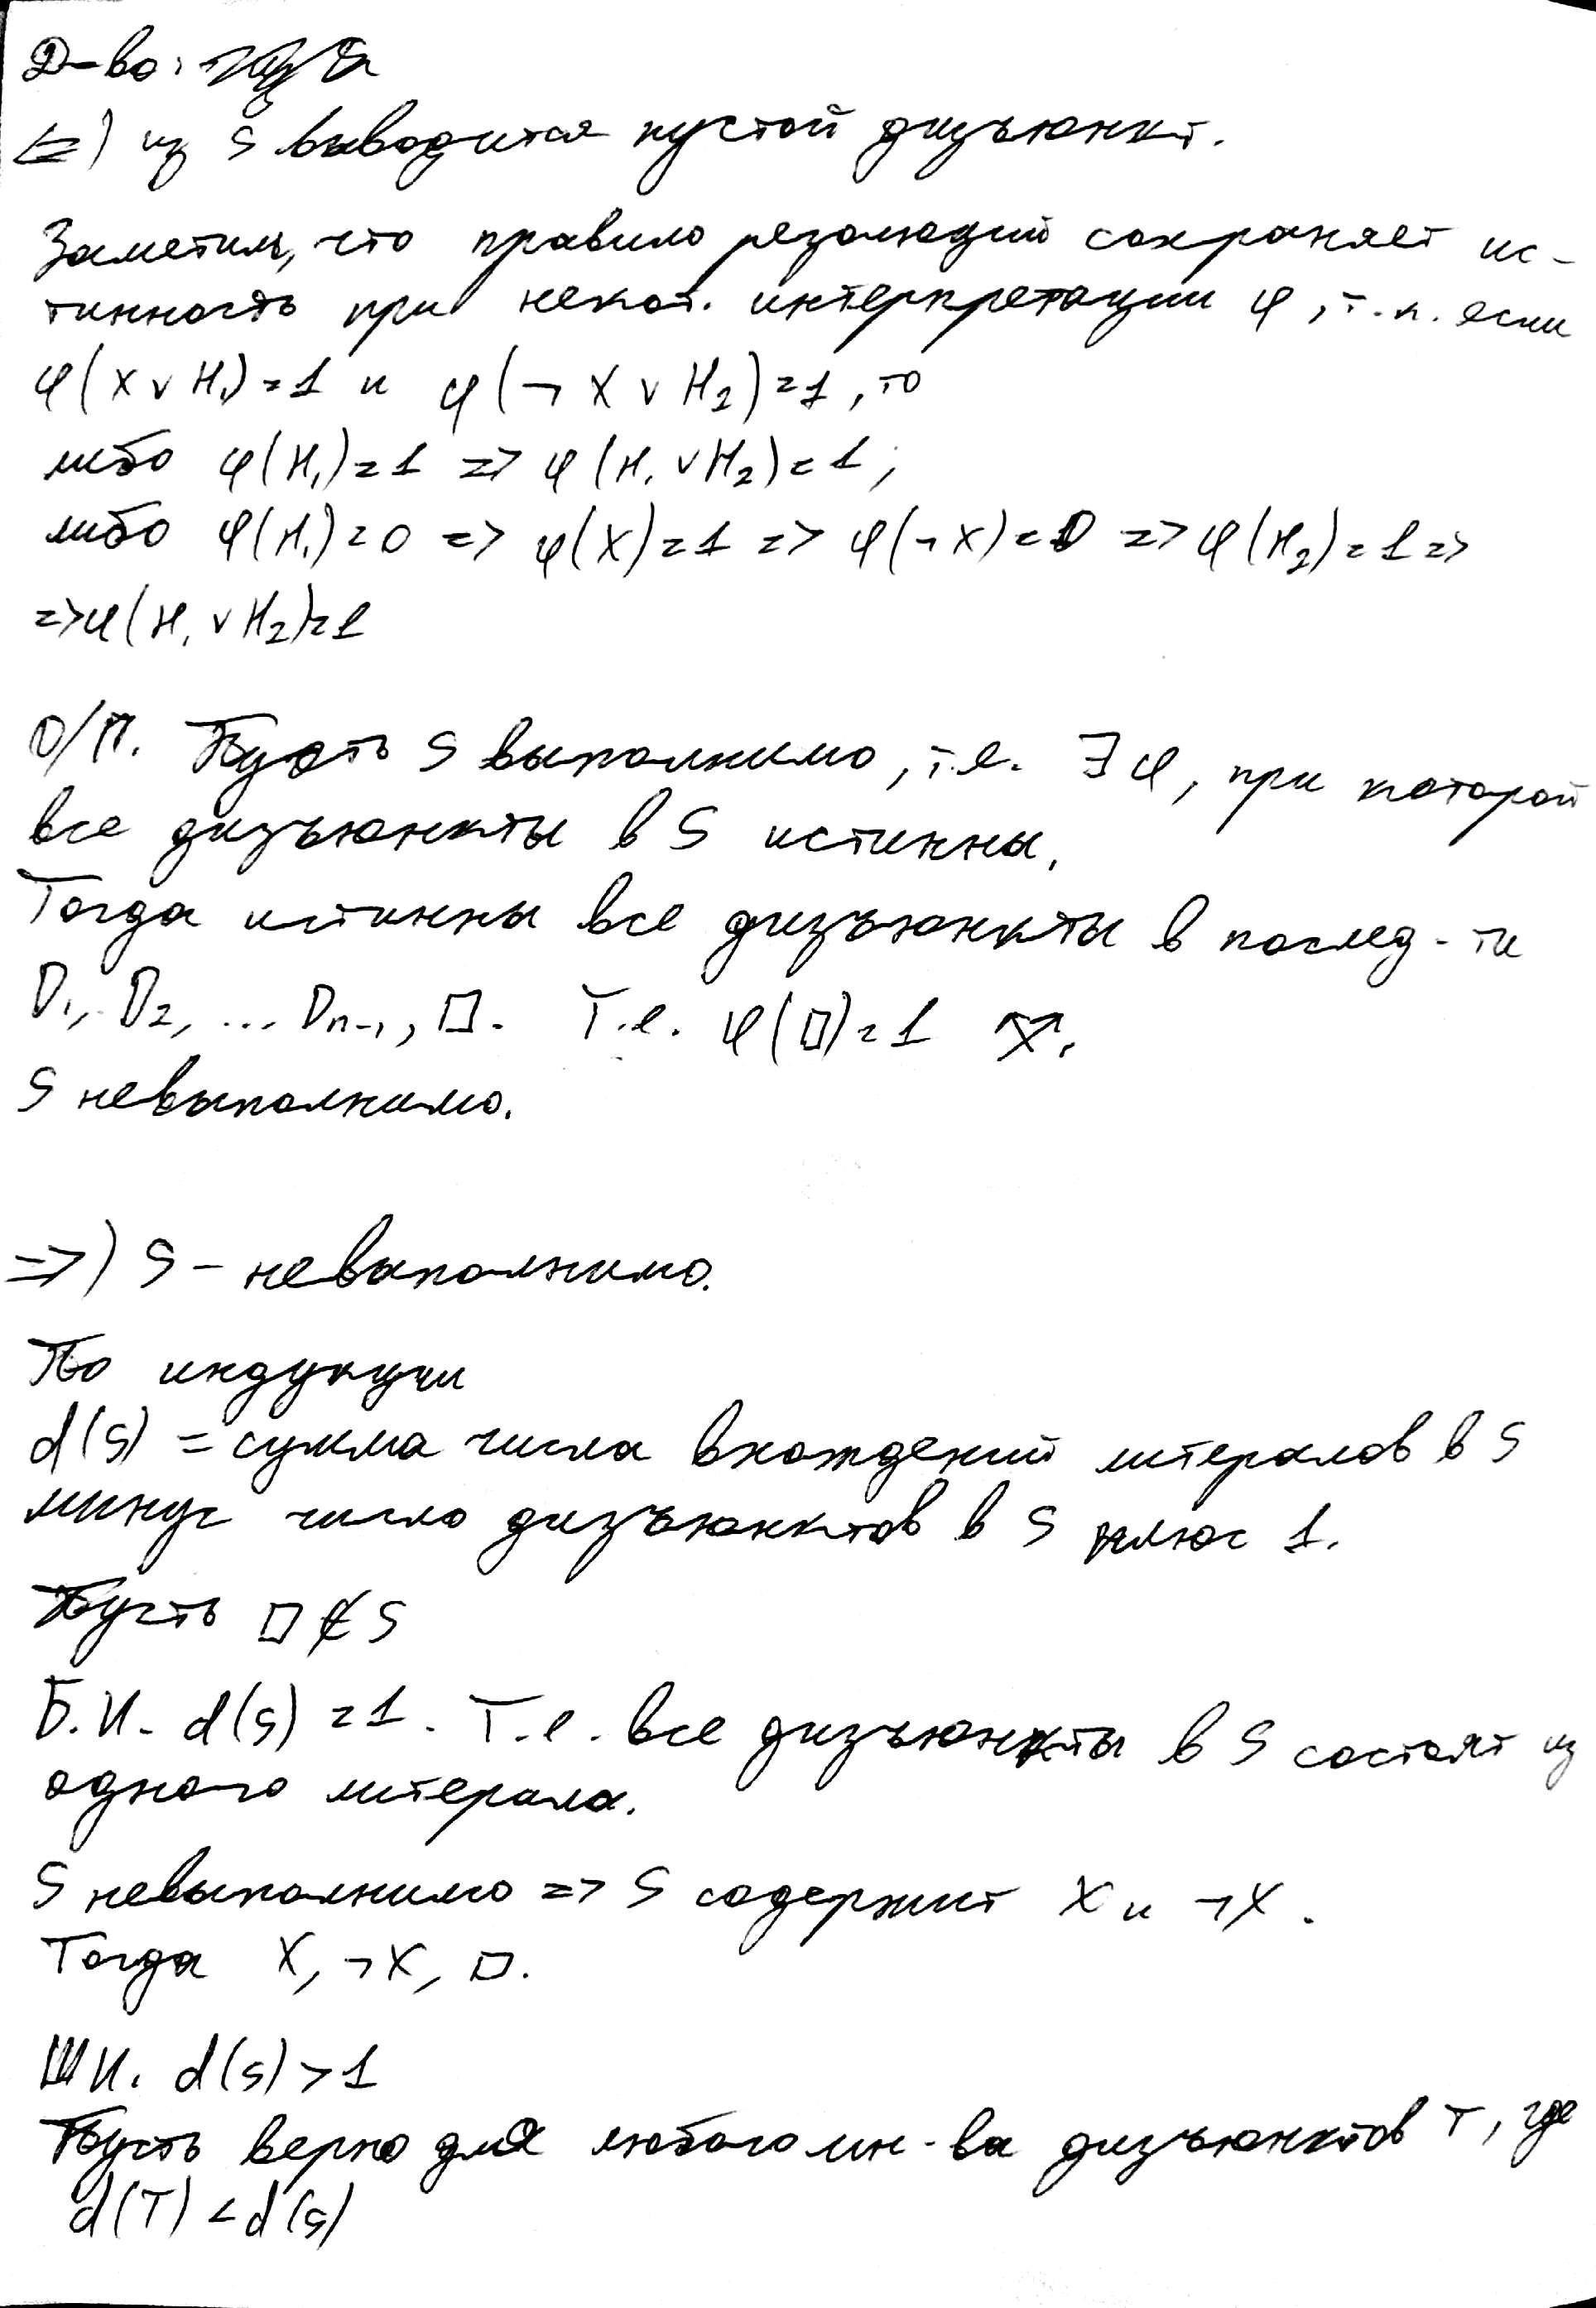 Д-во:
<=) из S выводится пустой дизъюнкт.
Заметим, что правило резолюций сохраняет ис-
тинность при некот. интерпретации φ, т.к. если
φ(X ∨ H₁) = 1 и φ(¬X ∨ H₂) = 1, то
либо φ(H₁) = 1 => φ(H₁ ∨ H₂) = 1;
либо φ(H₁) = 0 => φ(X) = 1 => φ(¬X) = 0 => φ(H₂) = 1 =>
=> φ(H₁ ∨ H₂) = 1
О/П. Пусть S выполнимо, т.е. ∃φ, при которой
все дизъюнкты в S истинны.
Тогда истинны все дизъюнкты в послед-ти
D₁, D₂, ... Dₙ₋₁, □. Т.е. φ(□) = 1
S невыполнимо.
=>) S – невыполнимо.
По индукции
d(S) = сумма числа вхождений литералов в S
минус число дизъюнктов в S плюс 1.
Пусть □ ∉ S
Б.И. d(S) = 1. Т.е. все дизъюнкты в S состоят из
одного литерала.
S невыполнимо => S содержит X и ¬X.
Тогда X, ¬X, □.
ШИ. d(S) > 1
Пусть верно для любого мн-ва дизъюнктов T, где
d(T) < d(S)